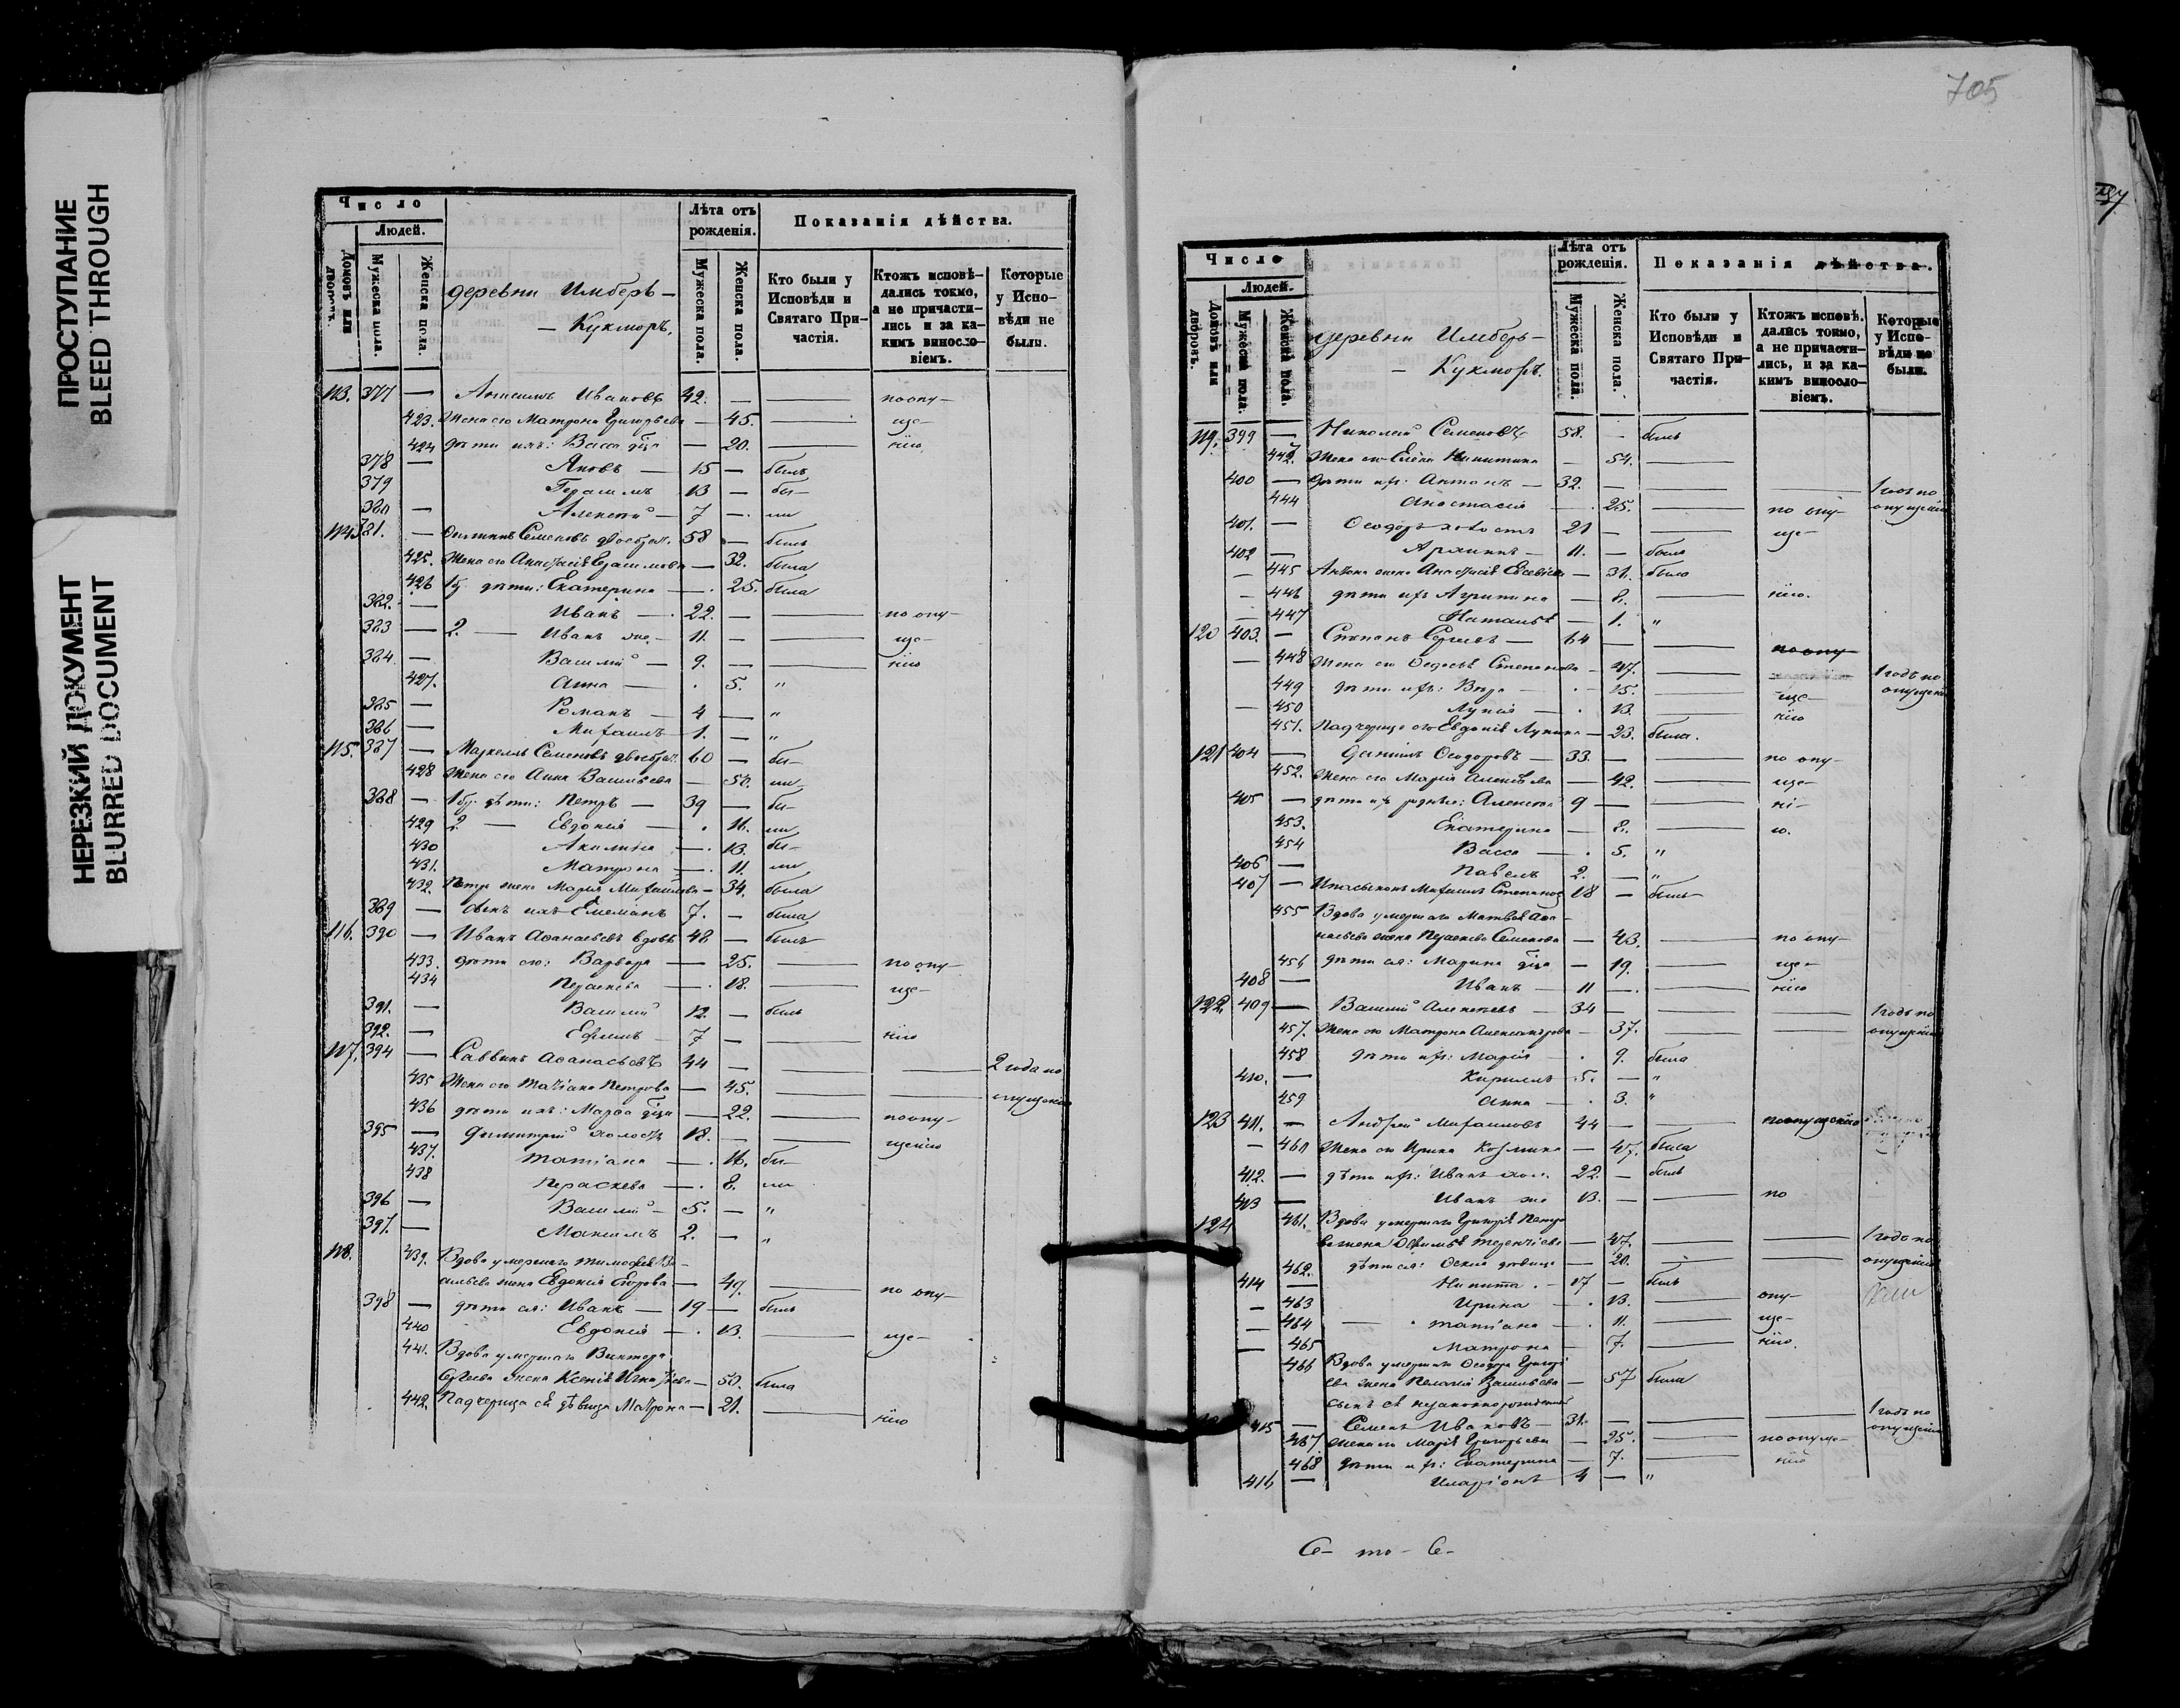 ПРОСТУПАНИЕ
BLEED THROUGH
НЕРЕЗКИЙ ДОКУМЕНТ
BLURRED DOCUMENT
Число
Людей.
Домовъ или дворовъ.
Мужеска пола.
Женска пола.
деревни Имберь-
- Кукморъ.
Лѣта отъ рожденія.
Мужеска пола.
Женска пола.
Показанія дѣйства.
Кто были у Исповѣди и Святаго Причастія.
Ктожъ исповѣдались токмо, а не причастились и за какимъ винословіемъ.
Которые у Исповѣди не были.
113. 377 — Анисимъ Ивановъ 42. — — по опу-
423. Жена его Матрона Григорьева — 45. — ще-
424 дѣти ихъ: Васса дѣца — 20. — нію
378 — Яковъ — 15 — былъ
379 Герасимъ 13 — бы-
380 — Алексѣй — 7 — ли
114 381. — Семеновъ двоебрач. 58 — былъ
425. Жена его Анастасія Герасимова — 32. была
426 1 бр. дѣти: Екатерина — 25. была
382. — Иванъ — 22. — — по опу-
383 — 2. — Иванъ же — 11. — — ще-
384. — Василій — 9. — — нію
427. Анна — 5. "
385 — Романъ — 4 — "
386 — Михаилъ — 1. — "
115. 387 — Маркелъ Семеновъ двоебрач. 60 — бы-
428 Жена его Анна Васильева — 50. ли
388 — 1 бр. дѣти: Петръ — 39 — бы-
429 2. — Евдокія — 16. ли
430 Акилина — 13 бы-
431. Матрона — 11. ли
432. Петра жена Марія Михайлова — 34. была
389 — сынъ ихъ 7. — была
116. 390 — Иванъ Аѳанасьевъ вдовъ 48 — былъ
433. дѣти его: Варвара — 25. — по опу-
434 Параскева — 18. — ще-
391. — Василій 12 — былъ
392. — Ефимъ — 7 — — нію
117. 394 — Саввинъ Аѳанасьевъ 44 — — — 2 года по
435 Жена его Татіана Петрова — 45. — — опущенію
436 дѣти ихъ: Марѳа дѣца — 22. — по опу-
395 — Димитрій холостъ 18. — — щенію
437. Татіана — 16. бы-
438 Параскева — 8. ли
396 — Василій — 5. — "
397. — Максимъ 2. — "
118. 439. Вдова умершаго Тимофея Ва-
сильева жена Евдокія Егорова — 49. — по опу-
398 — дѣти ея: Иванъ — 19 — былъ
440 Евдокія — 13. — ще-
441. Вдова умершаго Виктора
Сергѣева жена Ксенія Игнатьева — 50. была
442. Падчерица ея дѣвица Матрона — 21. — нію
705
Число
Людей.
Домовъ или дворовъ.
Мужеска пола.
Женска пола.
деревни Имберь-
- Кукморъ.
Лѣта отъ рожденія.
Мужеска пола.
Женска пола.
Показанія дѣйства.
Кто были у Исповѣди и Святаго Причастія.
Ктожъ исповѣдались токмо, а не причастились, и за какимъ винословіемъ.
Которые у Исповѣди не были.
119. 399 — Николай Семеновъ 58. — былъ
443. Жена его Елена Никитина — 54. —
400 — дѣти ихъ: Антонъ — 32. — — — 1 годъ по
444 Анастасія — 25. — по опу- опущенію
401. — Ѳеодоръ холостъ 21 — — ще-
402 — Архипъ — 11. — былъ
— 445 Антона жена Анастасія — 31. была
— 446 дѣти ихъ Агрипина — 8. — нію.
— 447 Наталія — 1. "
120 403. — Степанъ Сергѣевъ — 64 — — по опу
— 448 Жена его Ѳедосія Степанова — 47. — 1 годъ по
449 дѣти ихъ: Вѣра — 15. — ще- опущенію
— 450 Лукія — 13. — нію
451. Падчерица его Евдокія Лукина — 23. была.
121 404 — Даніилъ Ѳеодоровъ — 33. — — по опу-
452. Жена его Марія Алексѣева — 42. — ще-
405 — дѣти ихъ Алексѣй 9 — — ні-
453. Екатерина — 8. — ю.
454 Васса — 5. "
406 — Павелъ 2. — "
407 — Михаилъ Степановъ 18 — былъ
455 Вдова умершаго Матвѣя Аѳа-
насьева жена Параскева Семенова — 43. — по опу-
456 дѣти ея: Марина дѣца — 19. — ще-
408 — Иванъ — 11 — — нію
122. 409 — Василій Алексѣевъ — 34 — — — 1 годъ по
457. Жена его Матрона Александрова — 37. — — опущенію
458 дѣти ихъ: Марія — 9. была
410. — Кириллъ — 5. — "
459 Анна — 3. "
123 411. — Андрей Михаиловъ 44 — по опущенію
— 460 Жена его Ирина Козмина — 47. была
412. — дѣти ихъ: Иванъ хол. 22. — былъ
413 — Иванъ же 13. — — по
124 461. Вдова умершаго Григорія Петро
ва жена Терентіева — 47. — — 1 годъ по
462. дѣти ея: дѣвица — 20. — — опущенію
414 — Никита — 17 — былъ
— 463 Ирина — 13. — опу-
— 464 Татіана — 11. — ще-
— 465 Матрона — 7. — нію.
466 Вдова умершаго Ѳеодора Григорі
ева жена Пелагія Васильева — 57 была
сынъ ея незаконнорожденный
415 — Семенъ Ивановъ — 31. — — — 1 годъ по
467 Жена его Марія Григорьева — 25. — по опуще- опущенію
468 дѣти ихъ: Екатерина — 7. — нію
416 — Иларіонъ 4 — "
С- то- С-